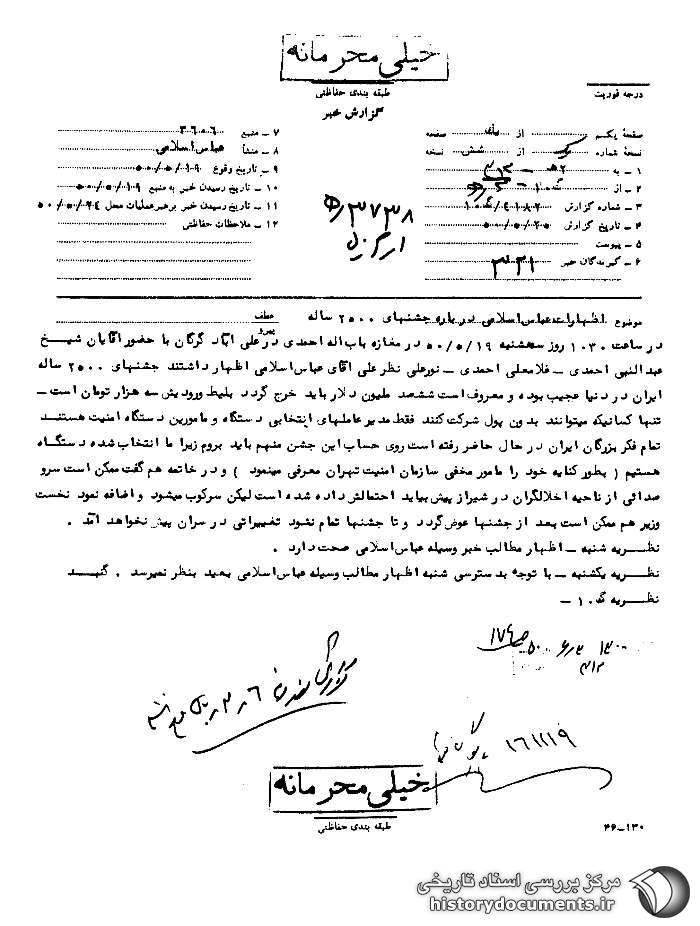 خیلی محرمانه
طبقه بندی حفاظتی
گزارش خبر
درجه فوریت
صفحهٔ یکم از یک صفحه
نسخهٔ شماره یک از شش نسخه
۱ ـ به ۳۱۲
۲ ـ از
۳ ـ شماره گزارش
۴ ـ تاریخ گزارش ۵۰/۵/۲۵
۵ ـ پیوست
۶ ـ گیرندگان خبر ۳۲۱
۷ ـ منبع ۳۶۰۶
۸ ـ منشأ عباس اسلامی
۹ ـ تاریخ وقوع ۵۰/۵/۱۹
۱۰ ـ تاریخ رسیدن خبر به منبع ۵۰/۵/۱۹
۱۱ ـ تاریخ رسیدن خبر برهبر عملیات محل ۵۰/۵/۲۴
۱۲ ـ ملاحظات حفاظتی
موضوع اظهارات عباس اسلامی درباره جشنهای ۲۵۰۰ ساله
عطف
پیرو
در ساعت ۱۰۳۰ روز سه‌شنبه ۵۰/۵/۱۹ در مغازه باب‌اله احمدی در علی آباد گرگان با حضور آقایان شیخ
عبدالنبی احمدی ـ غلامعلی احمدی ـ نورعلی نظرعلی آقای عباس اسلامی اظهار داشتند جشنهای ۲۵۰۰ ساله
ایران در دنیا عجیب بوده و معروف است ششصد ملیون دلار باید خرج گردد بلیط ورودیش سه هزار تومان است ـ
تنها کسانیکه میتوانند بدون پول شرکت کنند فقط مدیر عاملهای انتخابی دستگاه و مامورین دستگاه امنیت هستند
تمام فکر بزرگان ایران در حال حاضر رفته است روی حساب این جشن منهم باید بروم زیرا ما انتخاب شده دستگاه
هستیم ( بطور کنایه خود را مامور مخفی سازمان امنیت تهران معرفی مینمود ) و در خاتمه هم گفت ممکن است سرو
صدائی از ناحیه اخلالگران در شیراز پیش بیاید احتمالش داده شده است لیکن سرکوب میشود و اضافه نمود نخست
وزیر هم ممکن است بعد از جشنها عوض گردد و تا جشنها تمام نشود تغییراتی در سران پیش نخواهد آمد .
نظریه شنبه ـ اظهار مطالب خبر وسیله عباس اسلامی صحت دارد .
نظریه یکشنبه ـ با توجه بدسترسی شنبه اظهار مطالب وسیله عباس اسلامی بعید بنظر نمیرسد . گنبد
نظریه گ۱۰ ـ
۱۶۱۱۱۹
خیلی محرمانه
طبقه بندی حفاظتی
۴۶ـ۱۳۰
مرکز بررسی اسناد تاریخی
historydocuments.ir